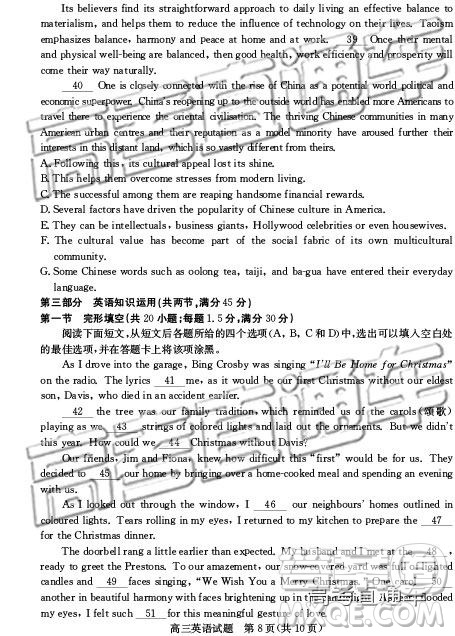 Its believers find its straightforward approach to daily living an effective balance to
materialism, and helps them to reduce the influence of technology on their lives. Taoism
emphasizes balance, harmony and peace at home and at work. 39 Once their mental
and physical well-being are balanced, then good health, work efficiency and prosperity will
come their way naturally.
40 One is closely connected with the rise of China as a potential world political and
economic superpower. China's reopening up to the outside world has enabled more Americans to
travel there to experience the oriental civilisation. The thriving Chinese communities in many
American urban centres and their reputation as a model minority have aroused further their
interests in this distant land, which is so vastly different from theirs.
A. Following this, its cultural appeal lost its shine.
B. This helps them overcome stresses from modern living.
C. The successful among them are reaping handsome financial rewards.
D. Several factors have driven the popularity of Chinese culture in America.
E. They can be intellectuals, business giants, Hollywood celebrities or even housewives.
F. The cultural value has become part of the social fabric of its own multicultural
community.
G. Some Chinese words such as oolong tea, taiji, and ba-gua have entered their everyday
language.
第三部分 英语知识运用(共两节,满分 45 分)
第一节 完形填空(共 20 小题;每题 1.5 分,满分 30 分)
阅读下面短文,从短文后各题所给的四个选项(A、B、C 和 D)中,选出可以填入空白处
的最佳选项,并在答题卡上将该项涂黑。
As I drove into the garage, Bing Crosby was singing “I'll Be Home for Christmas”
on the radio. The lyrics 41 me, as it would be our first Christmas without our eldest
son, Davis, who died in an accident earlier.
42 the tree was our family tradition, which reminded us of the carols(颂歌)
playing as we 43 strings of colored lights and laid out the ornaments. But we didn't
this year. How could we 44 Christmas without Davis?
Our friends, Jim and Fiona, knew how difficult this “first” would be for us. They
decided to 45 our home by bringing over a home-cooked meal and spending an evening
with us.
As I looked out through the window, I 46 our neighbours' homes outlined in
coloured lights. Tears rolling in my eyes, I returned to my kitchen to prepare the 47
for the Christmas dinner.
The doorbell rang a little earlier than expected. My husband and I met at the 48,
ready to greet the Prestons. To our amazement, our snow-covered yard was full of lighted
candles and 49 faces singing, “We Wish You a Merry Christmas.” One carol 50
another in beautiful harmony with faces brightening up in the light. As flooded
my eyes, I felt such 51 for this meaningful gesture of love.
高三英语试题 第 8 页(共 10 页)
高考直通车